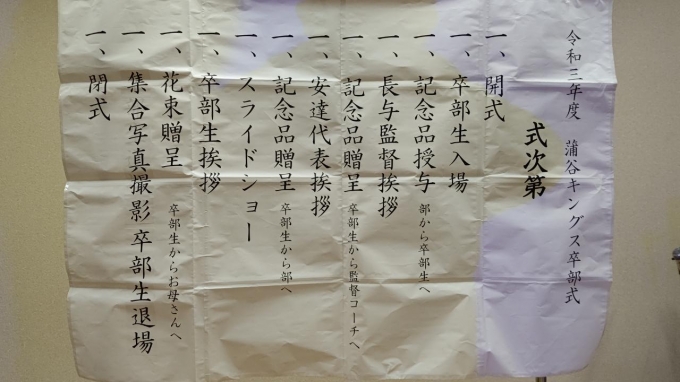 令和三年度　蒲谷キングス卒部式
式次第
一、開式
一、卒部生入場
一、記念品授与　部から卒部生へ
一、長与監督挨拶
一、記念品贈呈　卒部生から監督コーチへ
一、安達代表挨拶
一、記念品贈呈　卒部生から部へ
一、スライドショー
一、卒部生挨拶
一、花束贈呈　卒部生からお母さんへ
一、集合写真撮影 卒部生退場
一、閉式